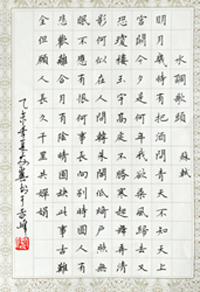 水調歌頭
蘇軾
明月幾時有把酒問青天不知天上
宮闕今夕是何年我欲乘風歸去又
恐瓊樓玉宇高處不勝寒起舞弄清
影何似在人間轉朱閣低綺戶照無
眠不應有恨何事長向別時圓人有
悲歡離合月有陰晴圓缺此事古難
全但願人長久千里共嬋娟